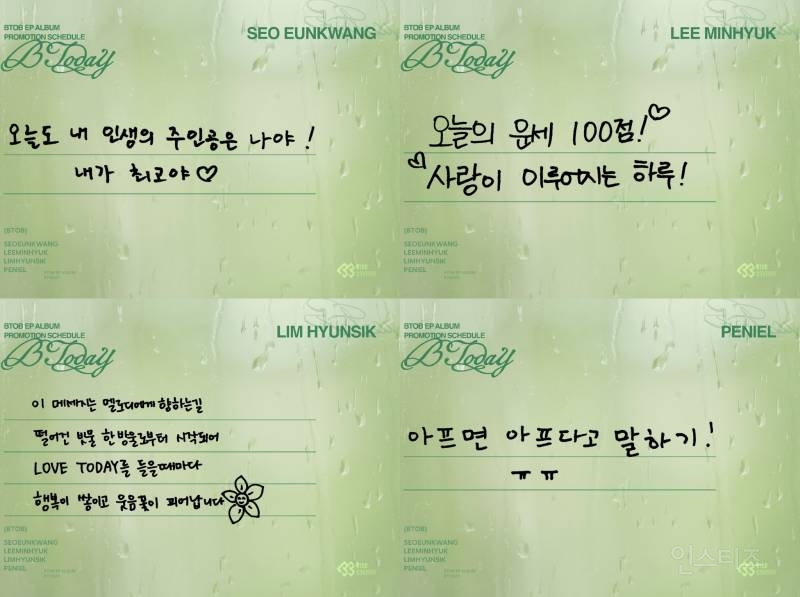 BTOB EP ALBUM
PROMOTION SCHEDULE
B Today
SEO EUNKWANG
오늘도 내 인생의 주인공은 나야!
내가 최고야
(BTOB)
SEOEUNKWANG
LEEMINHYUK
LIMHYUNSIK
PENIEL
BTOB EP ALBUM
BTODAY
BTOB EP ALBUM
PROMOTION SCHEDULE
B Today
LEE MINHYUK
오늘의 운세 100점!
사랑이 이루어지는 하루!
(BTOB)
SEOEUNKWANG
LEEMINHYUK
LIMHYUNSIK
PENIEL
BTOB EP ALBUM
BTODAY
BTOB EP ALBUM
PROMOTION SCHEDULE
B Today
LIM HYUNSIK
이 메세지는 멜로디에게 향하는길
떨어진 빗물 한방울로부터 시작되어
LOVE TODAY를 들을때마다
행복이 쌓이고 웃음꽃이 피어납니다
(BTOB)
SEOEUNKWANG
LEEMINHYUK
LIMHYUNSIK
PENIEL
BTOB EP ALBUM
BTODAY
BTOB EP ALBUM
PROMOTION SCHEDULE
B Today
PENIEL
아프면 아프다고 말하기!
ㅠㅠ
(BTOB)
SEOEUNKWANG
LEEMINHYUK
LIMHYUNSIK
PENIEL
BTOB EP ALBUM
BTODAY
인스티즈